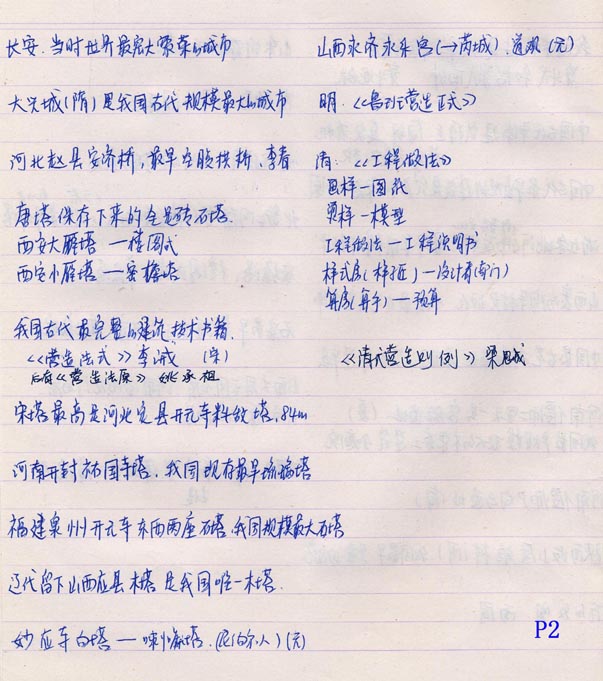 长安.当时世界最宏大繁荣的城市
大兴城(隋)是我国古代规模最大的城市
河北赵县安济桥,最早空腹拱桥.李春
唐塔.保存下来的全是砖石塔
西安大雁塔—楼阁式
西安小雁塔—密檐塔
我国古代最完整的建筑技术书籍.
《营造法式》李诫 (宋)
后有《营造法原》姚承祖
宋塔最高是河北定县开元寺料敌塔.84m
河南开封祐国寺塔.我国现存最早琉璃塔
福建泉州开元寺东西两座石塔.我国规模最大石塔
辽代留下山西应县木塔是我国唯一木塔.
妙应寺白塔—喇嘛塔.(尼泊尔人)(元)
山西永济永乐宫(→芮城).道观(元)
明.《鲁班营造正式》
清.《工程做法》
画样—图纸
烫样—模型
工程做法—工程说明书
样式房(样子匠)—设计(部门)
算房(算手)—预算
《清代营造则例》梁思成
P2